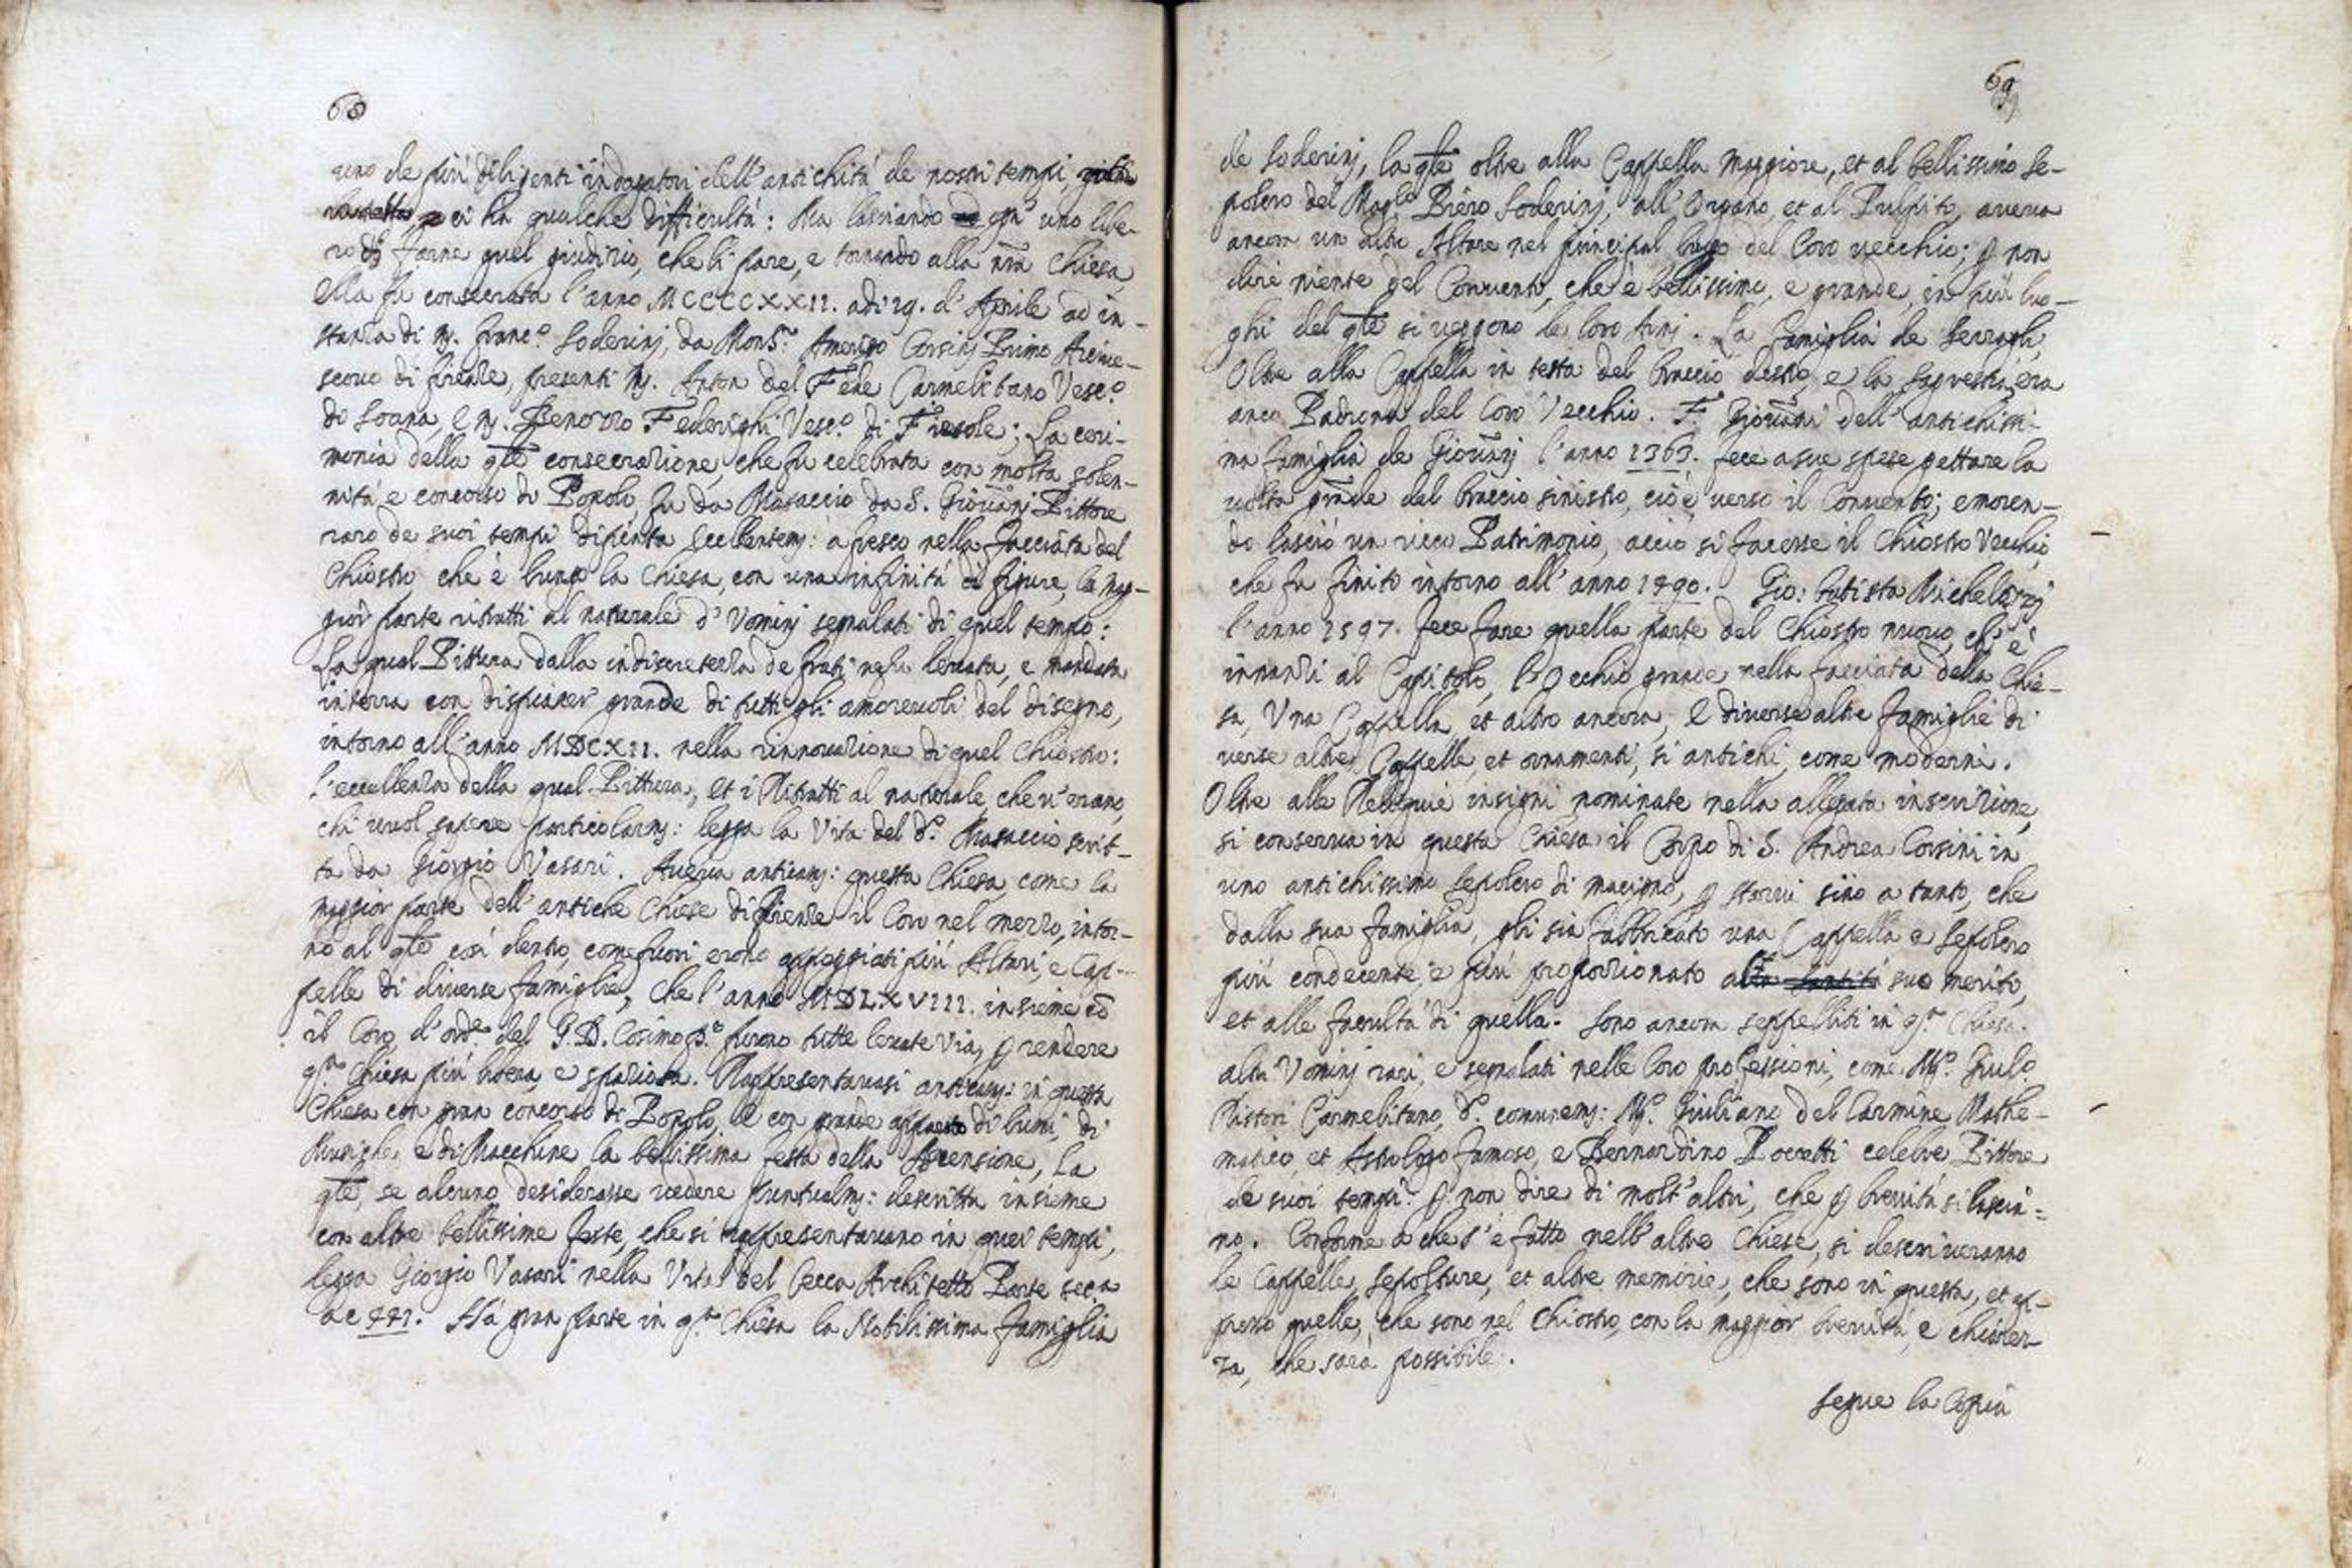 68
uno de più diligenti indagatori dell'antichità de nostri tempi,
ci ha qualche difficultà: Ma lasciando ogn'uno libe-
ro di farne quel giudizio, che li pare, e tornando alla nrã Chiesa,
Ella fu consecrata l'anno MCCCCXXII. adi 19. d'Aprile ad in-
stanza di Mj. Franc.º Soderinj, da Mons.r Amerigo Corsinj Primo Arcive-
scovo di Firenze, presenti Mj. Anton del Fede Carmelitano Vesc.º
di Soana, e Mj. Benozzo Federighi Vesc.º di Fiesole; La ceri-
monia della qle consecrazione, che fu celebrata con molta solen-
nità e concorso di Popolo, fu da Masaccio da S. Giovãnj Pittore
raro de suoi tempi dipinta eccellentemj: a fresco nella facciata del
Chiostro, che è lungo la Chiesa, con una infinità di figure, la mag-
gior parte ritratti al naturale d'Vominj segnalati di quel tempo:
La qual Pittura dalla indiscretezza de frati ne fu levata, e mandata
in terra con dispiacer grande di tutti gli amorevoli del disegno,
intorno all'anno MDCXII. nella rinnovazione di quel Chiostro:
l'eccellenza della qual Pittura, et i Ritratti al naturale, che v'erano,
chi vuol sapere particolarmj: legga la Vita del d.º Masaccio scrit-
ta da Giorgio Vasari. Aveva anticamj: questa Chiesa, come la
maggior parte dell'antiche Chiese di Firenze il Coro nel mezzo, intor-
no al qle così dentro, come fuori erono appoggiati più Altari, e Cap-
pelle di diverse famiglie, che l'anno MDLXVIII. insieme cõ
il Coro d'ord.e del G.D. Cosimo p.º furono tutte levate via, p rendere
q.ta Chiesa più libera, e spaziosa. Rappresentavasi anticamj: in questa
Chiesa con gran concorso di Popolo, e con grande apparato di lumi, di
Musiche, e di Macchine la bellissima festa della Ascensione, la
qle, se alcuno desiderasse vedere puntualmj: descritta insieme
con altre bellissime feste, che si rappresentavano in quei tempi,
legga Giorgio Vasari nella Vita del Cecca Architetto Parte sec.a
a c 441. Ha gran parte in q.ta Chiesa la Nobilissima famiglia
69
de Soderinj, la qle oltre alla Cappella Maggiore, et al bellissimo Se-
polcro del Mag.co Piero Soderinj, all'Organo, et al Pulpito, aveva
ancora un altro Altare nel principal luogo del Coro vecchio; p non
dire niente del Convento, che è bellissimo, e grande, in più luo-
ghi del qle si veggono le loro Armj. La famiglia de Serragli,
Oltre alla Cappella in testa del braccio destro, e la Sagrestia, era
anco Padrona del Coro Vecchio. F. Giovãni dell'antichissi-
ma famiglia de Giovãnj l'anno 1363. fece a sue spese gettare la
volta grãde del braccio sinistro, cioè verso il Convento; e moren-
do lasciò un ricco Patrimonio, acciò si facesse il Chiostro Vecchio,
che fu finito intorno all'anno 1490. Gio: batista Michelozzj
l'anno 1597. fece fare quella parte del Chiostro nuovo, ch'è
innanzi al Capitolo, l'Occhio grande nella facciata della Chie-
sa, Vna Cappella, et altro ancora, e diverse altre famiglie di
verse altre Cappelle, et ornamenti, si antichi, come moderni.
Oltre alle Reliquie insigni nominate nella allegata inscrizione,
si conserva in questa Chiesa il Corpo di S. Andrea Corsini in
uno antichissimo Sepolcro di macigno, p starvi sino a tanto, che
dalla sua famiglia, gli sia fabbricato una Cappella e Sepolcro
più condecente, e più proporzionato al suo merito,
et alle facultà di quella. Sono ancora seppelliti in q.ta Chiesa
altri Vominj rari, e segnalati nelle loro professioni, come M.º Giul.º
Ristori Carmelitano, d.º comunemj: M.º Giuliano del Carmine Mathe-
matico, et Astrologo famoso, e Bernardino Poccetti celebre Pittore
de suoi tempi. p non dire di molt'altri, che p brevità si lascia=
no. Conforme a che s'è fatto nell'altre Chiese, si descriveranno
le Cappelle, Sepolture, et altre memorie, che sono in questa, et ap-
presso quelle, che sono nel Chiostro, con la maggior brevità, e chiarez-
za, che sarà possibile.
segue la Copia